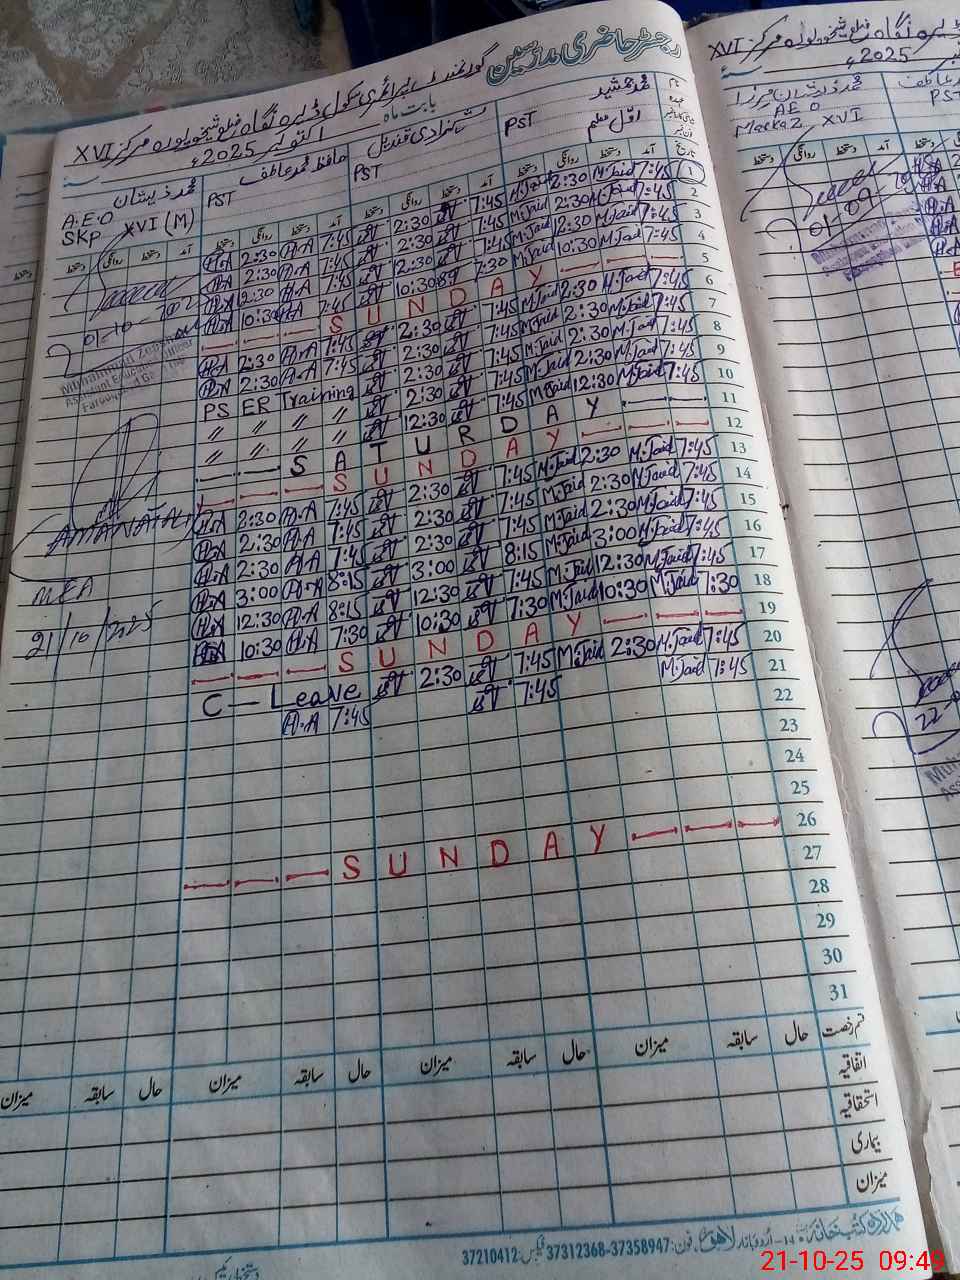 رجسٹر حاضری مدرسین
گورنمنٹ پرائمری سکول ڈیرہ نگاہ ضلع شیخوپورہ مرکز XVI
بابت ماہ اکتوبر 2025ء
نام محمد جمشید شہزادی قندیل حافظ محمد عاطف محمد ذیشان
عہدہ اوّل معلم
PST PST PST A.E.O
SKP XVI (M)
تاریخ آمد دستخط روانگی دستخط آمد دستخط روانگی دستخط آمد دستخط روانگی دستخط آمد دستخط روانگی دستخط
1 7:45 M.Jaid 2:30 M.Jaid 7:45 2:30 7:45 H.A 2:30 H.A
2 7:45 M.Jaid 2:30 M.Jaid 7:45 2:30 7:45 H.A 2:30 H.A
3 7:45 M.Jaid 12:30 M.Jaid 7:45 12:30 7:45 H.A 12:30 H.A
4 7:45 M.Jaid 10:30 M.Jaid 7:30 10:30 7:45 H.A 10:30 H.A
5 SUNDAY
6 7:45 M.Jaid 2:30 M.Jaid 7:45 2:30 7:45 H.A 2:30 H.A
7 7:45 M.Jaid 2:30 M.Jaid 7:45 2:30 7:45 H.A 2:30 H.A
8 7:45 M.Jaid 2:30 M.Jaid 7:45 2:30 PSER Training
9 7:45 M.Jaid 2:30 M.Jaid 7:45 2:30 // // // //
10 7:45 M.Jaid 12:30 M.Jaid 7:45 12:30 // // // //
11 SATURDAY
12 SUNDAY
13 7:45 M.Jaid 2:30 M.Jaid 7:45 2:30 7:45 H.A 2:30 H.A
14 7:45 M.Jaid 2:30 M.Jaid 7:45 2:30 7:45 H.A 2:30 H.A
15 7:45 M.Jaid 2:30 M.Jaid 7:45 2:30 7:45 H.A 2:30 H.A
16 7:45 M.Jaid 3:00 M.Jaid 8:15 3:00 8:15 H.A 3:00 H.A
17 7:45 M.Jaid 12:30 M.Jaid 7:45 12:30 8:15 H.A 12:30 H.A
18 7:30 M.Jaid 10:30 M.Jaid 7:30 10:30 7:30 H.A 10:30 H.A
19 SUNDAY
20 7:45 M.Jaid 2:30 M.Jaid 7:45 2:30 C — Leave
21 7:45 M.Jaid 7:45 7:45 H.A
22
23
24
25
26 SUNDAY
27
28
29
30
31
AMANAT ALI
MEA
21/10/2025
قسم رخصت حال سابقہ میزان حال سابقہ میزان حال سابقہ میزان حال سابقہ میزان
اتفاقیہ
استحقاقیہ
بیماری
میزان
ہمدرد کتب خانہ 14-اُردو بازار لاہور فون: 37358947-37312368 فیکس: 37210412
XVI
2025ء
محمد ذیشان مرزا
AEO
Markaz XVI
PST
01-09
21-10-25 09:49